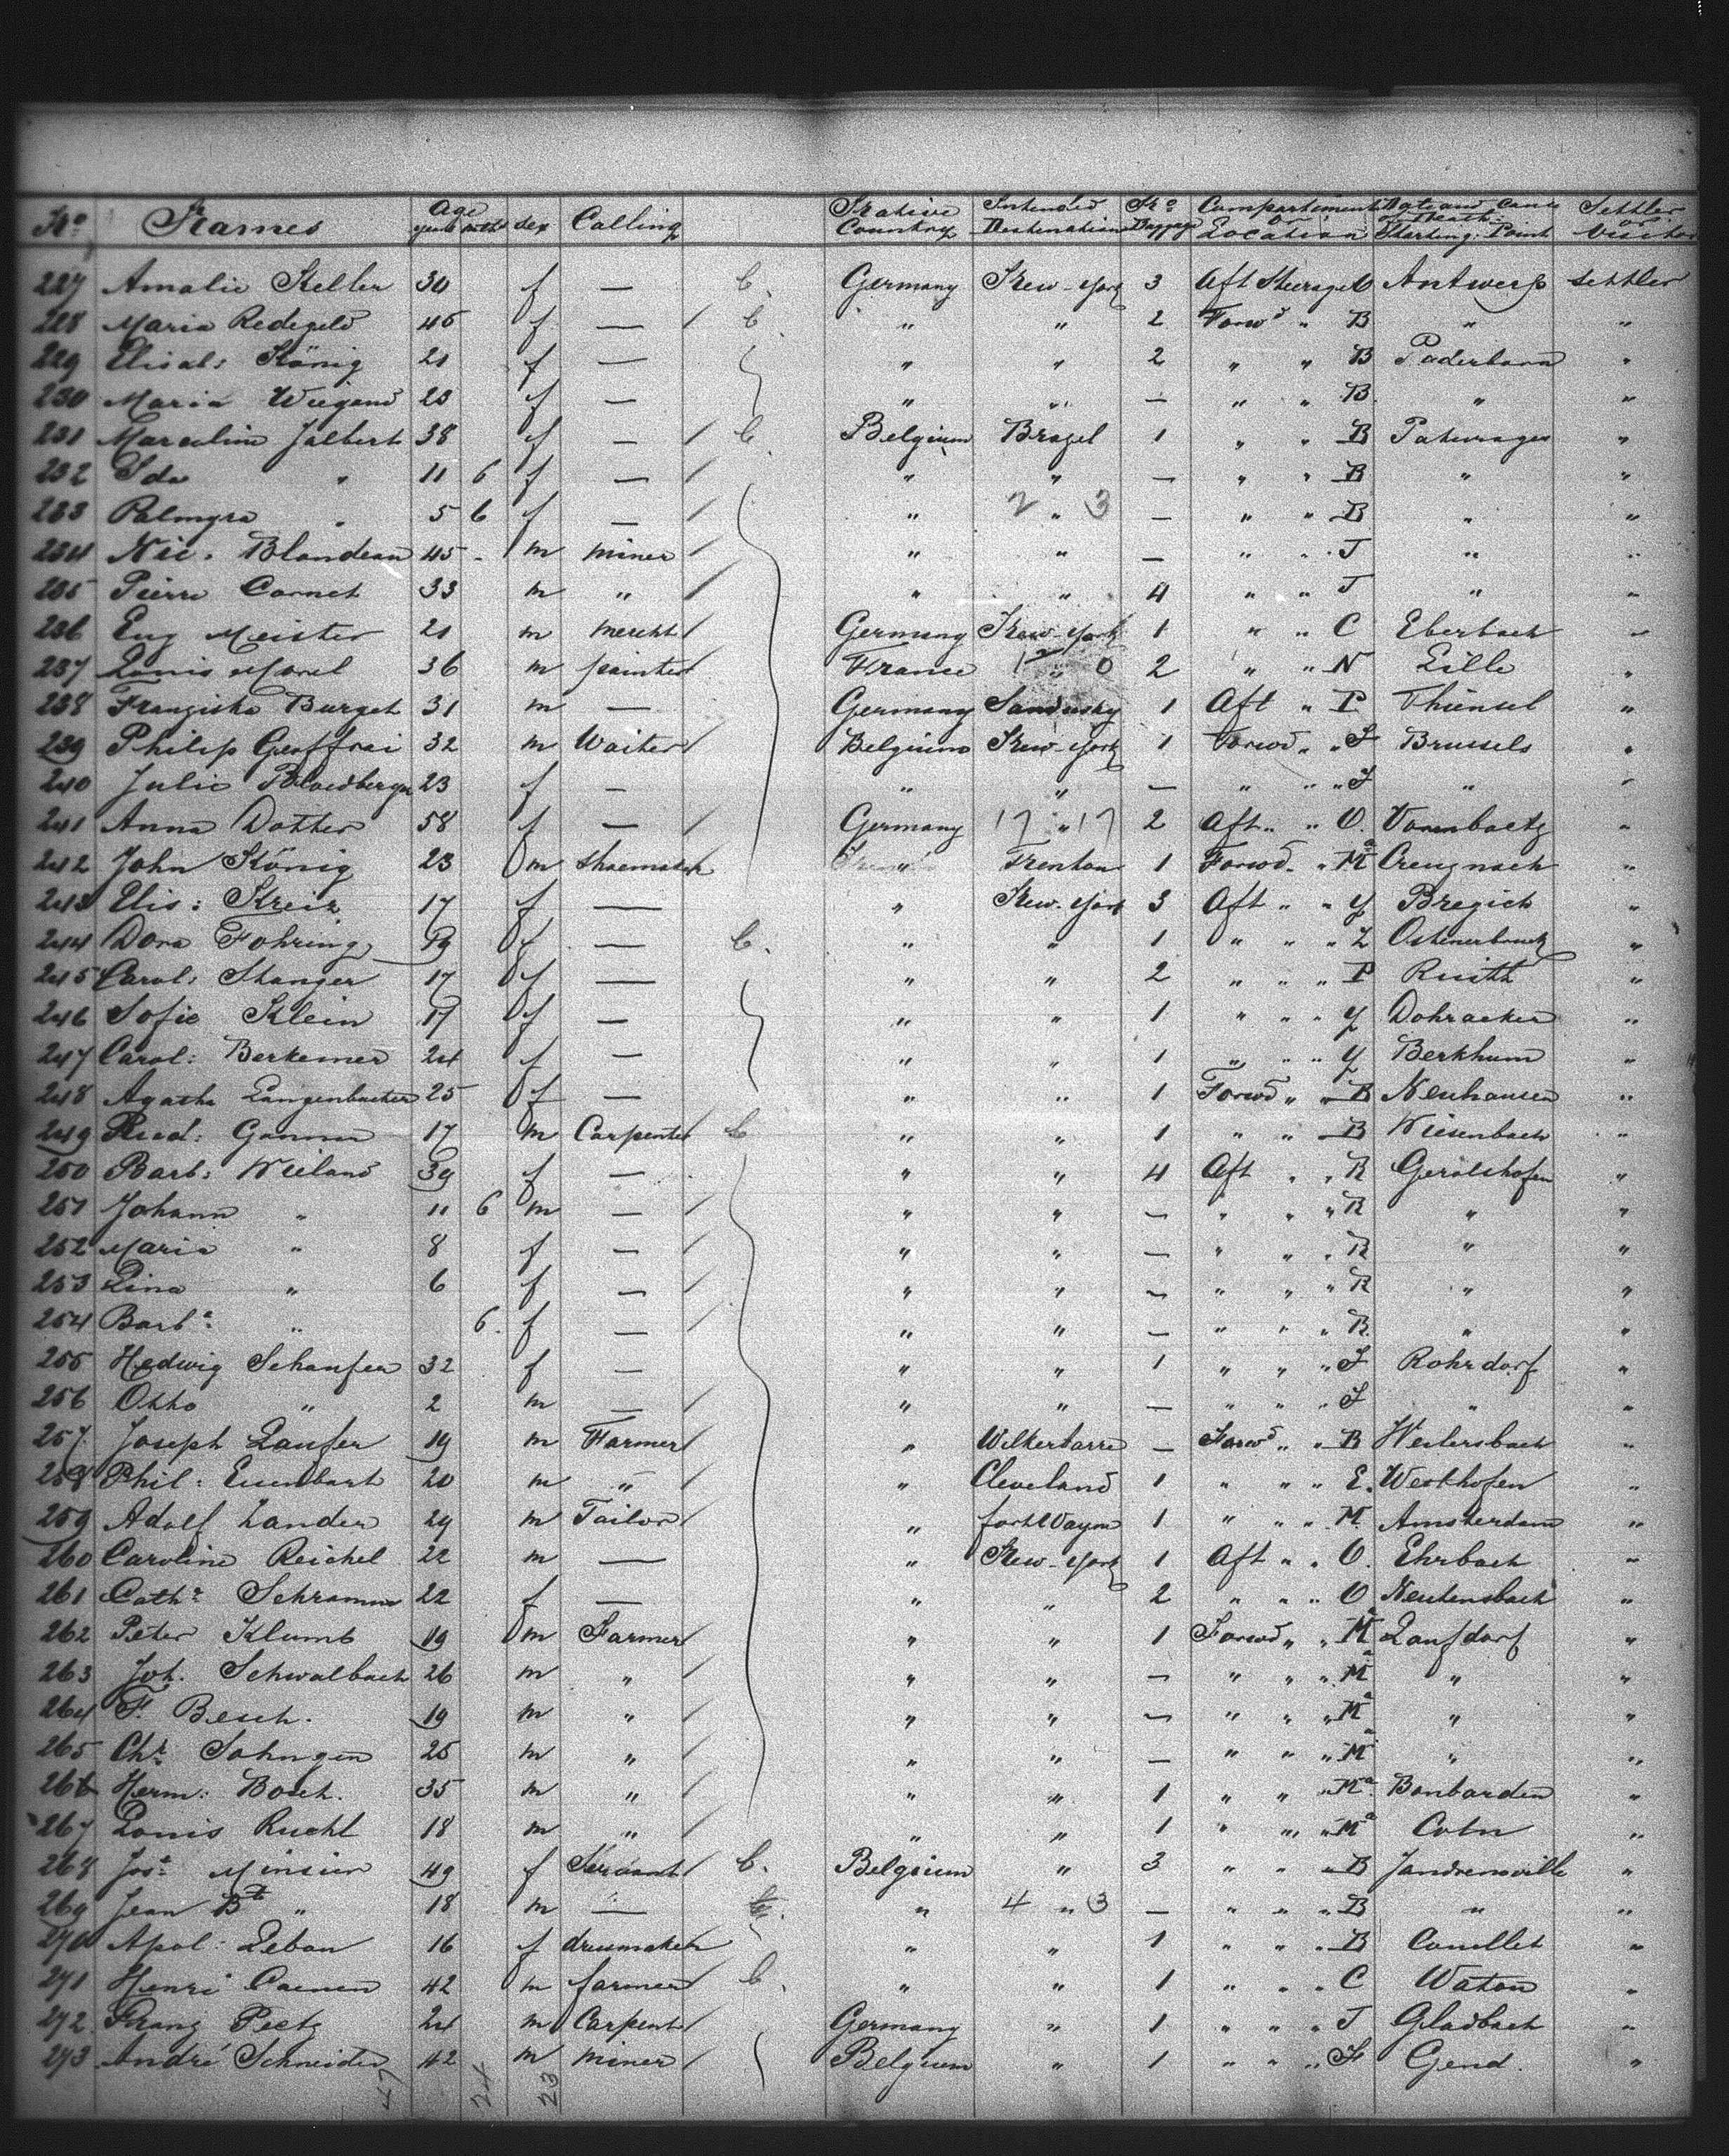 No Names Age years mths sex Calling Native Country Intended Destination No Baggage Compartment or Location Date and Cause of Death: Starting: Point Settler or Visitor
227 Amalie Keller 30 f — C. Germany New-York 3 Aft Steerage O Antwerp settler
228 Maria Redegeld 45 f — / C. " " 2 Forwd " B " "
229 Elisab: König 21 f — " " 2 " " B Paderborn "
230 Maria Wiegand 23 f — " " — " " B. " "
231 Marceline Jalbert 38 f — / C. Belgium Brazel 1 " " B Paturages "
232 Ida " 11 6 f — / " " — " " B " "
233 Palmyra " 5 6 f — / " 2 " 3 — " " B " "
234 Nic. Blondeau 45 - m miner / " " — " " J " "
235 Pierre Cornet 33 m " / " " 4 " " J " "
236 Eug Meister 21 m mercht / Germany New-York 1 " " C Eberbach "
237 Louis Morel 36 m painter / France " 0 2 " " N Lille "
238 Franziska Burget 31 m — Germany Sandusky 1 Aft " P "
239 Philip Geoffroi 32 m Waiter / Belgium New-York 1 Forwd " " J Brussels "
240 Julie 23 f — " " — " " " J " "
241 Anna Dotter 58 f — / Germany 17 " 17 2 Aft " " O. "
242 John König 23 m shoemaker " Trenton 1 Forwd " Ma Creuznach "
243 Elis: Kreiz 17 f — " New-York 3 Aft " " Y "
244 Dora Fohring 19 f — C. " " 1 " " " Z "
245 Carol: Stanger 17 f — " " 2 " " " P Ruith "
246 Sofie Klein 17 f — " " 1 " " " Y Dohracker "
247 Carol: Berkemer 24 f — " " 1 " " " Y Berkhum "
248 Agatha Langenbacher 25 f — " " 1 Forwd " " B Neuhausen "
249 Rud: Gamm 17 m Carpenter C " " 1 " " B Wiesenbach "
250 Barb: Wieland 39 f — " " 4 Aft " " R Gerolshofen "
251 Johann " 11 6 m — / " " — " " " R " "
252 Maria " 8 f — / " " — " " " R " "
253 Lina " 6 f — / " " — " " " R " "
254 Barba " 6. f — / " " — " " " R. " "
255 Hedwig Schaufer 32 f — " " 1 " " " J Rohrdorf "
256 Otto " 2 m — / " " — " " " J " "
257 Joseph Laufer 19 m Farmer / " Wilkerbarre — Forwd " " B Weilersbach "
258 Phil: Eisenbart 20 m " / " Cleveland 1 " " " E. Westhofen "
259 Adolf Lander 29 m Tailor / " fort Wayne 1 " " " M. Amsterdam "
260 Caroline Reichel 22 m — " New-York 1 Aft " " O. Ehrbach "
261 Cathr Schramm 22 f — " " 2 " " " O "
262 Peter Klumb 19 m Farmer / " " 1 Forwd " " Ma Laufdorf "
263 Joh. Schwalbach 26 m " / " " — " " " Ma " "
264 F. Besch. 19 m " / " " — " " " Ma " "
265 Chr Sohngen 25 m " / " " — " " " Ma " "
266 Herm: Bosch. 35 m " / " " 1 " " " Ma Bonbarden "
267 Louis Ruehl 18 m " / " " 1 " " " Ma Coln "
268 Josa 49 f Servant / C. Belgium " 3 " " " B Jandrenoville "
269 Jean Bte " 18 m — " 4 " 3 — " " " B " "
270 Apol: Lebon 16 f dressmaker " " 1 " " " B Couillet "
271 Henri Caenen 42 m farmer / C. " " 1 " " " C Watou "
272 Franz Peetz 24 m Carpenter Germany " 1 " " " J Gladbach "
273 André Schneider 42 m miner / Belgium " 1 " " " F Gend. "
47 24 23